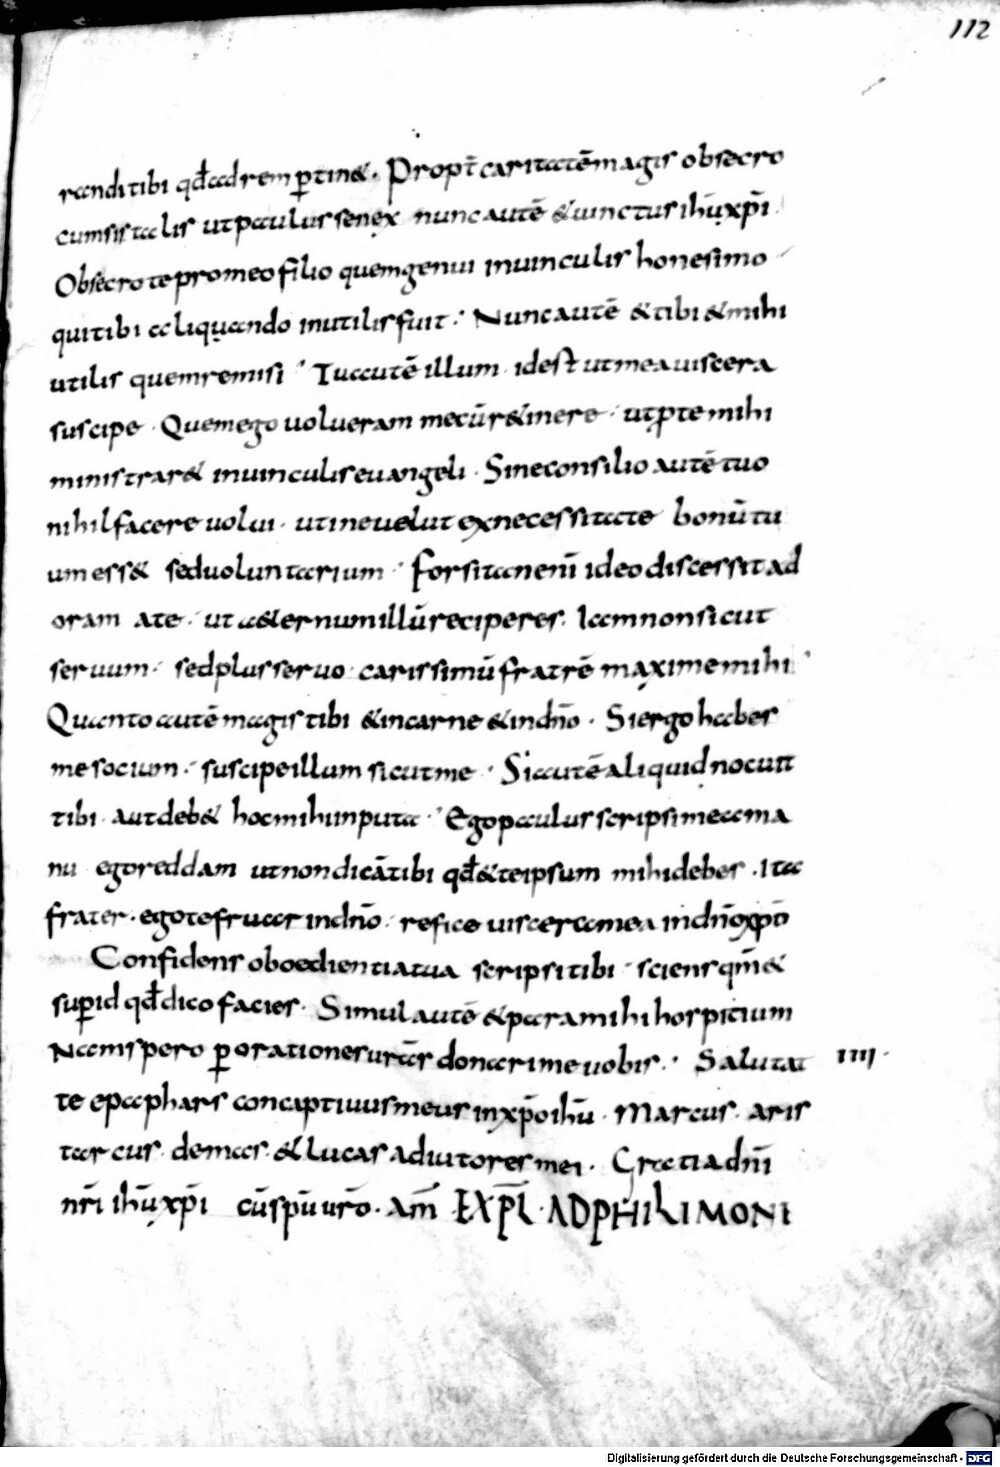 112
randi tibi qđ ad rem ꝑtin&. Propt̄ caritatē magis obsecro
cum sis talis ut paulus senex nunc autē & uinctus ihū xpī.
Obsecro te pro meo filio quem genui in uinculis honesimo
qui tibi aliquando inutilis fuit. Nunc autē & tibi & mihi
utilis quem remisi. Tu autē illum. id est ut mea uiscera
suscipe. Quem ego uolueram mecū r&inere. ut ꝑ te mihi
ministrar& in uinculis euangeli. Sine consilio autē tuo
nihil facere uolui. uti ne uelut ex necessitate bonū tu
um ess& sed uoluntarium. Forsitan enī ideo discessit ad
oram a te. ut a&ernum illū reciperes. Iam non sicut
seruum. sed plus seruo carissimū fratrē maxime mihi.
Quanto autē magis tibi & in carne & in dn̄o. Si ergo habes
me socium. suscipe illum sicut me. Si autē aliquid nocuit
tibi. aut deb& hoc mihi inputa. Ego paulus scripsi mea ma
nu ego reddam ut non dicā tibi qđ & te ipsum mihi debes. Ita
frater. ego te fruar in dn̄o. refice uiscera mea in dn̄o xp̄o
Confidens oboedientia tua scripsi tibi. sciens qm̄ &
suꝑ id qđ dico facies. Simul autē & para mihi hospitium
Nam spero ꝑ orationes urās donari me uobis. Salutat
IIII.
te epaphras concaptiuus meus in xp̄o ihū. Marcus. aris
tarcus. demas. & lucas adiutores mei. Gratia dn̄i
nr̄i ihū xp̄i cū spū uro. am̄ EXPL. AD PHILIMONI
Digitalisierung gefördert durch die Deutsche Forschungsgemeinschaft - DFG